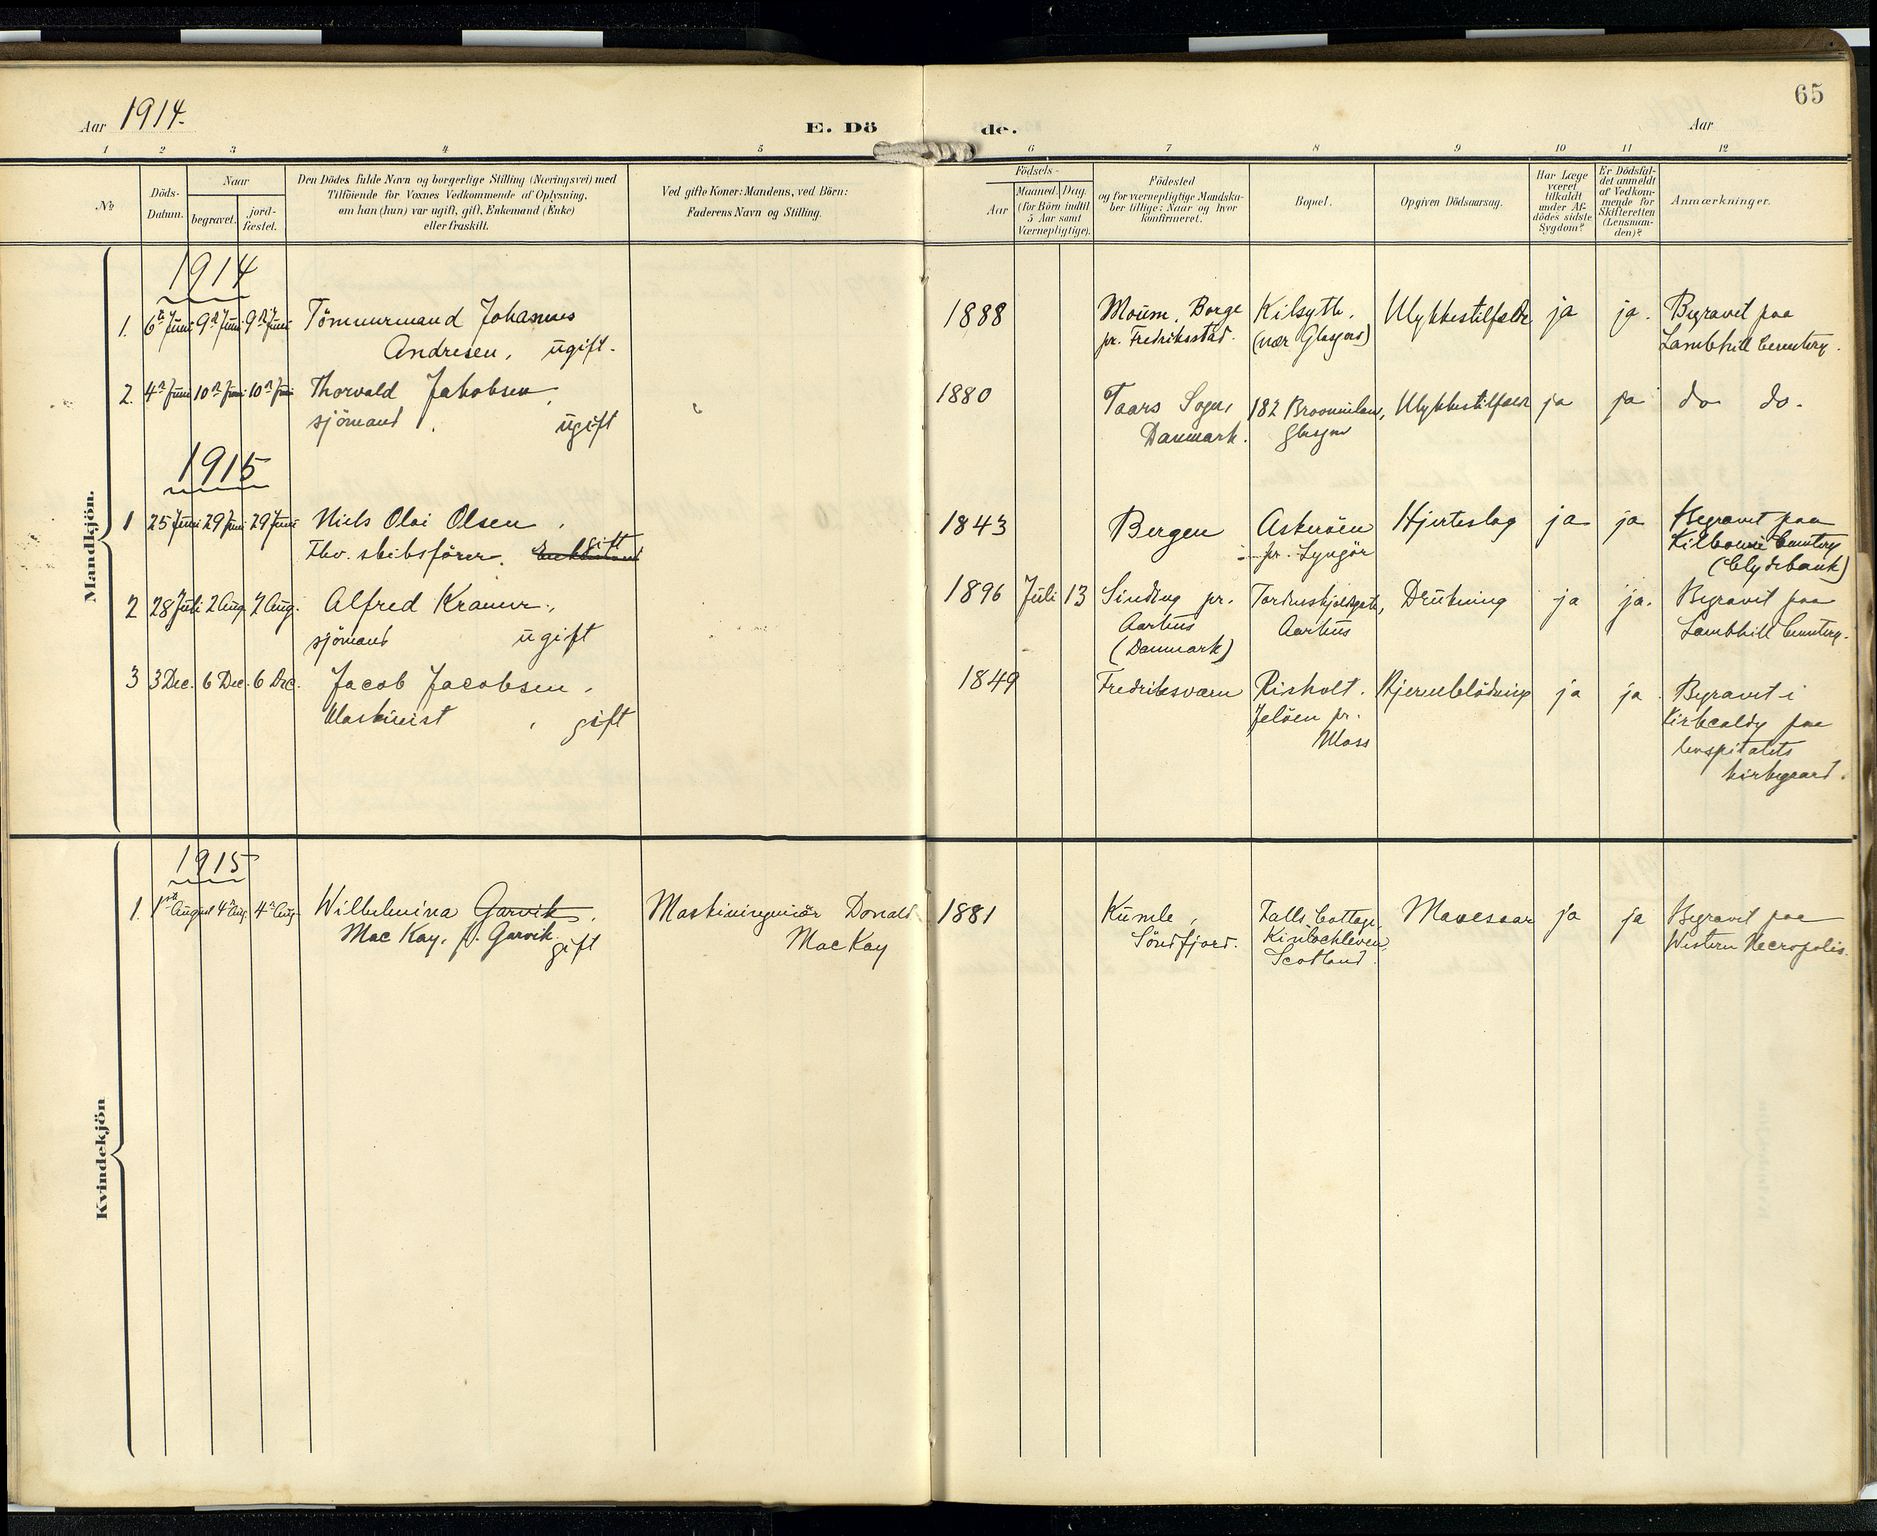 65
Aar 1914.
E. Döde.
Aar
1 2 3 4 5 6 7 8 9 10 11 12
No
Döds-
Datum.
Naar
begravet.
jord-
fæstet.
Den Dödes fulde Navn og borgerlige Stilling (Næringsvei) med
Tilföiende for Voxnes Vedkommende af Oplysning,
om han (hun) var ugift, gift, Enkemand (Enke)
eller fraskilt.
Ved gifte Koner: Mandens, ved Börn:
Faderens Navn og Stilling.
Födsels-
Aar
Maaned. Dag.
(for Börn indtil
5 Aar samt
Værnepligtige).
Födested
og for værnepligtige Mandska-
ber tillige: Naar og hvor
konfirmeret.
Bopæl.
Opgiven Dödsaarsag.
Har Læge
været
tilkaldt
under Af-
dödes sidste
Sygdom?
Er Dödsfal-
det anmeldt
af Vedkom-
mende for
Skifteretten
(Lensman-
den)?
Anmærkninger.
Mandkjön.
1914
1. 6te Juni 9de Juni 9de Juni Tömmermand Johannes 1888 Moum, Borge Kilsyth, Ulykkestilfælde ja ja. Begravet paa
Andresen, ugift. pr. Fredriksstad. (nær Glasgow) Lambhill Cemetery.
2. 4de Juni 10de Juni 10de Juni Thorvald Jakobsen, 1880 Taars Sogn, 182 Broomielaw, Ulykkestilfælde ja ja do do.
sjömand ugift Danmark. Glasgow
1915
1 25 Juni 29 Juni 29 Juni Niels Olai Olsen, 1843 Bergen Askeröen Hjerteslag ja ja Begravet paa
Fhv. skibsförer. Enkemand gift pr. Lyngör Kilbowie Cemetery
(Clydebank)
2 28 Juli 2 Aug. 2 Aug. Alfred Kramer, 1896 Juli 13 Sinding pr. Tordenskjoldsgate, Drukning ja ja. Begravet paa
sjömand ugift Aarhus Aarhus Lambhill Cemetery.
(Danmark)
3 3 Dec. 6 Dec. 6 Dec. Jacob Jacobsen, 1849 Fredriksværn Risholt. Hjerneblödning ja ja Begravet i
Maskinist, gift Jelöen pr. Kirkcaldy paa
Moss hospitalets
kirkegaard.
Kvindekjön
1915
1. 1ste August 4de Aug. 4de Aug. Wilhelmina Garvik, Maskiningeniör Donald 1881 Kumle, Falls Cottage, Mavesaar ja ja Begravet paa
Mac Kay, f. Garvik gift MacKay Söndfjord. Kinlochleven, Western Necropolis.
Scotland.